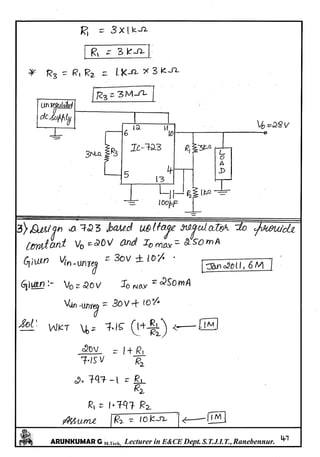 R₁ = 3×1KΩ
R₁ = 3KΩ
* R₃ = R₁ R₂ = 1KΩ × 3KΩ
R₃ = 3MΩ
unregulated
dc supply
12 11
6 10
V₀=28V
3MΩ R₃ IC-723 R₁ 3KΩ
LOAD
4
5 13
R₂ 1KΩ
100pF
3) Design a 723 based voltage regulator to provide
constant V₀ = 20V and I₀ max = 250mA
Given Vin-unreg = 30V ± 10%.
Jan 2011, 6M
Given :- V₀ = 20V I₀ MAX = 250mA
Vin-unreg = 30V + 10%
Sol: WKT V₀ = 7.15 (1+ R₁/R₂) ← 1M
20V/7.15V = 1+ R₁/R₂
2.797-1 = R₁/R₂
R₁ = 1.797 R₂
Assume R₂ = 10KΩ ← 1M
ARUNKUMAR G M.Tech, Lecturer in E&CE Dept. S.T.J.I.T., Ranebennur. 47